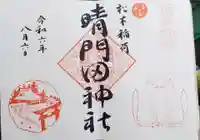 松本稲荷
晴門田神社
令和六年
八月六日